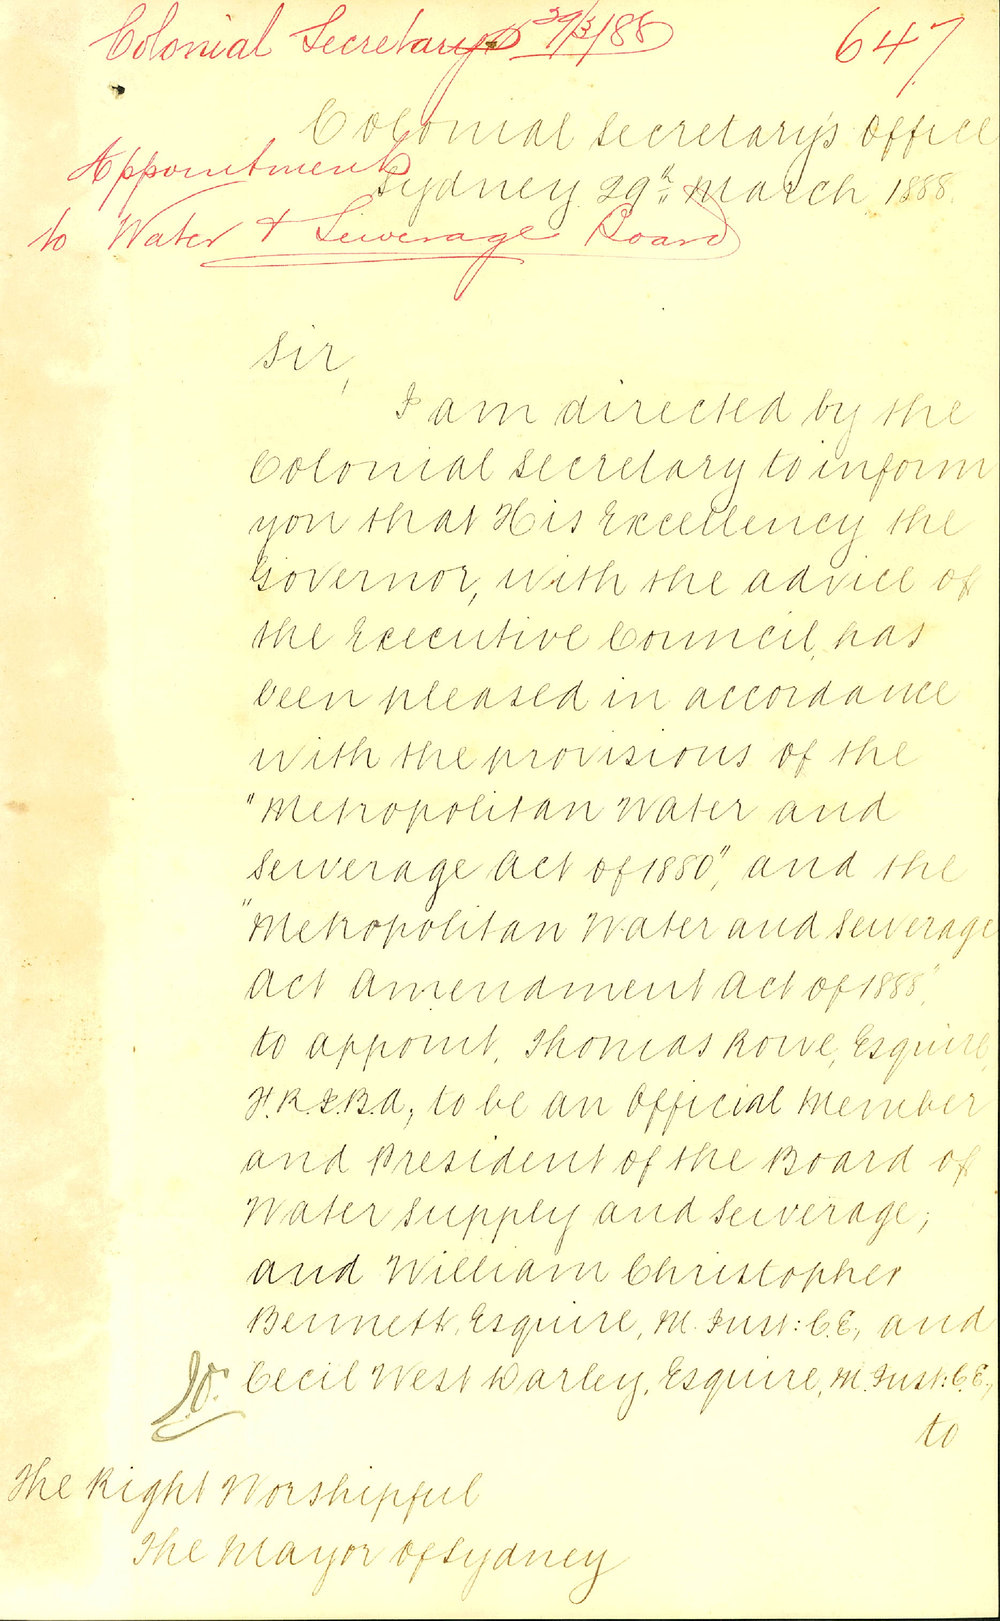 Colonial Secretary 29/3/88
647
Colonial Secretary's Office
Appointment
Sydney 29th March 1888.
to Water & Sewerage Board
Sir,
I am directed by the
Colonial Secretary to inform
you that His Excellency the
Governor, with the advice of
the Executive Council, has
been pleased in accordance
with the provisions of the
"Metropolitan Water and
Sewerage Act of 1880", and the
"Metropolitan Water and Sewerage
Act Amendment Act of 1888",
to appoint, Thomas Rowe, Esquire,
F.R.I.B.A; to be an Official Member
and President of the Board of
Water Supply and Sewerage;
and William Christopher
Bennett, Esquire, M. Inst: C.E., and
Cecil West Darley, Esquire, M. Inst: C.E.,
to
The Right Worshipful
The Mayor of Sydney